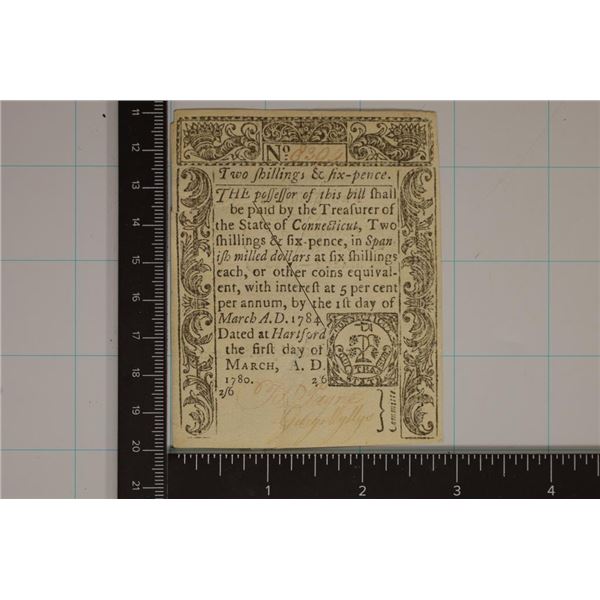 No.
Two ſhillings & ſix-pence.
THE poſſeſſor of this bill ſhall
be paid by the Treaſurer of
the State of Connecticut, Two
ſhillings & ſix-pence, in Span-
iſh milled dollars at ſix ſhillings
each, or other coins equival-
ent, with intereſt at 5 per cent
per annum, by the 1ſt day of
March A. D. 1784.
Dated at Hartford
the firſt day of
MARCH, A. D.
1780. 2/6
2/6
Committee
11
12
13
14
15
16
17
18
19
20
21
1 2 3 4